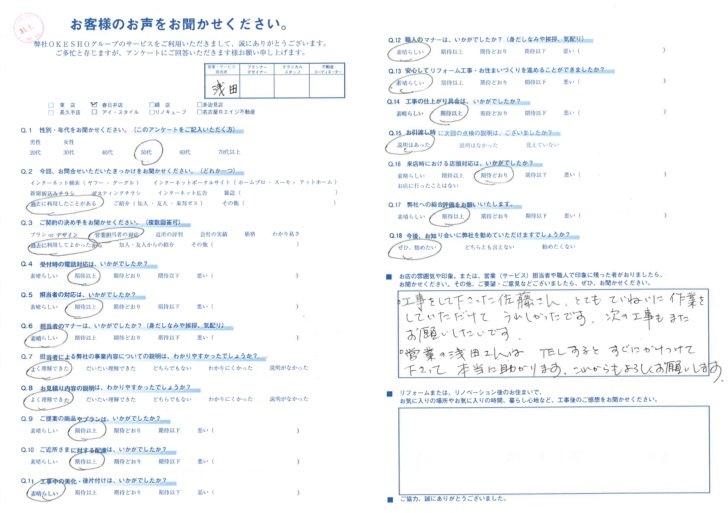 お客様のお声をお聞かせください。
弊社OKESHOグループのサービスをご利用いただきまして、誠にありがとうございます。
ご多忙と存じますが、アンケートにご回答いただきます様お願い申し上げます。
営業・サービス担当者 プランナーデザイナー テクニカルスタッフ 不動産コーディネーター
浅田
□ 本店 ☑ 春日井店 □ 緑店 □ 多治見店
□ 長久手店 □ アイ・スタイル □ リノキューブ □ 名古屋ロエイジ不動産
Q.1 性別・年代をお聞かせください。(このアンケートをご記入いただく方)
男性 女性
20代 30代 40代 50代 60代 70代以上
Q.2 今回、お問合せいただいたきっかけをお聞かせください。(どれか一つ)
インターネット検索(ヤフー・グーグル) インターネットポータルサイト(ホームプロ・スーモ・アットホーム)
新聞折込チラシ ポスティングチラシ インターネット広告 雑誌( )
過去に利用したことがある ご紹介(知人・友人・東邦ガス) その他( )
Q.3 ご契約の決め手をお聞かせください。(複数回答可)
プラン or デザイン 営業担当者の対応 近所の評判 会社の実績 価格 わかり易さ
過去に利用してよかったから 知人・友人からの紹介 その他( )
Q.4 受付時の電話対応は、いかがでしたか?
素晴らしい 期待以上 期待どおり 期待以下 悪い( )
Q.5 担当者の対応は、いかがでしたか?
素晴らしい 期待以上 期待どおり 期待以下 悪い( )
Q.6 担当者のマナーは、いかがでしたか?(身だしなみや挨拶、気配り)
素晴らしい 期待以上 期待どおり 期待以下 悪い( )
Q.7 担当者による弊社の事業内容についての説明は、わかりやすかったでしょうか?
よく理解できた だいたい理解できた どちらでもない わかりにくかった 説明がなかった
Q.8 お見積り内容の説明は、わかりやすかったでしょうか?
よく理解できた だいたい理解できた どちらでもない わかりにくかった 説明がなかった
Q.9 ご提案の商品やプランは、いかがでしたか?
素晴らしい 期待以上 期待どおり 期待以下 悪い( )
Q.10 ご近所さまに対する配慮は、いかがでしたか?
素晴らしい 期待以上 期待どおり 期待以下 悪い( )
Q.11 工事中の美化・後片付けは、いかがでしたか?
素晴らしい 期待以上 期待どおり 期待以下 悪い( )
Q.12 職人のマナーは、いかがでしたか?(身だしなみや挨拶、気配り)
素晴らしい 期待以上 期待どおり 期待以下 悪い( )
Q.13 安心してリフォーム工事・お住まいづくりを進めることができましたか?
素晴らしい 期待以上 期待どおり 期待以下 悪い( )
Q.14 工事の仕上がり具合は、いかがでしたか?
素晴らしい 期待以上 期待どおり 期待以下 悪い( )
Q.15 お引渡し時に次回の点検の説明は、ございましたか?
説明はあった 説明はなかった 覚えていない
Q.16 来店時における店頭対応は、いかがでしたか?
素晴らしい 期待以上 期待どおり 期待以下 悪い( )
お店に行ったことはない
Q.17 弊社への総合評価をお願いいたします。
素晴らしい 期待以上 期待どおり 期待以下 悪い( )
Q.18 今後、お知り合いに弊社を勧めていただけますでしょうか?
ぜひ、勧めたい どちらとも言えない 勧めたくない
■ お店の雰囲気や印象、または、営業(サービス)担当者や職人で印象に残った者がおりましたら、
お聞かせください。その他、ご要望・ご意見などございましたら、ぜひ、お聞かせください。
○工事をして下さった佐藤さん、とてもていねいに作業を
していただけて うれしかったです。次の工事もまた
お願いしたいです。
○営業の浅田さんは TELすると すぐにかけつけて
下さって 本当に助かります。これからもよろしくお願いします。
■ リフォームまたは、リノベーション後のお住まいで、
お気に入りの場所やお気に入りの時間、暮らし心地など、工事後のご感想をお聞かせください。
■ ご協力、誠にありがとうございました。